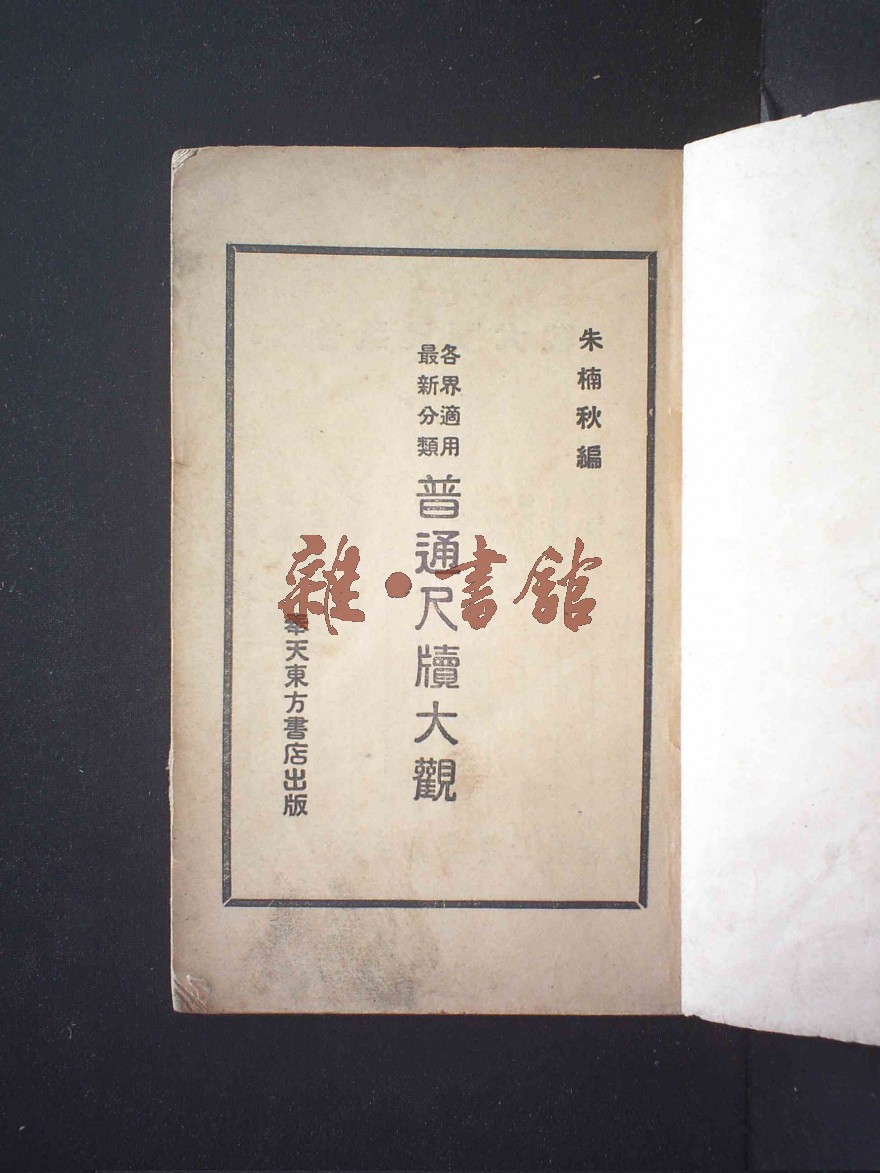 朱楠秋編
各界適用
最新分類
普通尺牘大觀
奉天東方書店出版
雜·書館